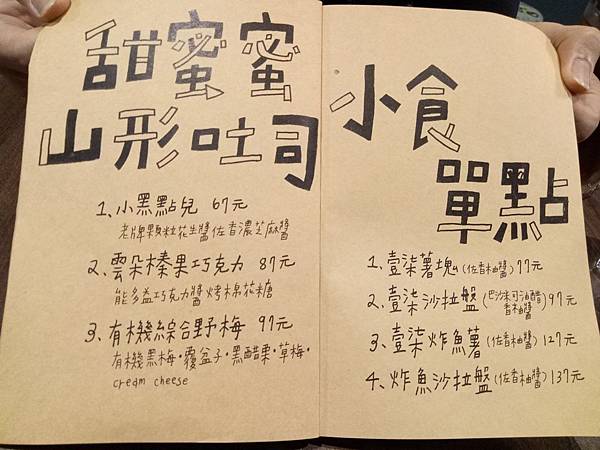 甜蜜蜜
山形吐司
1、小黑點兒 67元
老牌顆粒花生醬佐香濃芝麻醬
2、雲朵榛果巧克力 87元
能多益巧克力醬烤棉花糖
3、有機綜合野莓 97元
有機黑梅·覆盆子·黑醋栗·草莓·
cream cheese
小食
單點
1、壹柒薯塊(佐香柚醬)77元
2、壹柒沙拉盤(巴沙米可油醋 香柚醬)97元
3、壹柒炸魚薯(佐香柚醬)127元
4、炸魚沙拉盤(佐香柚醬)137元